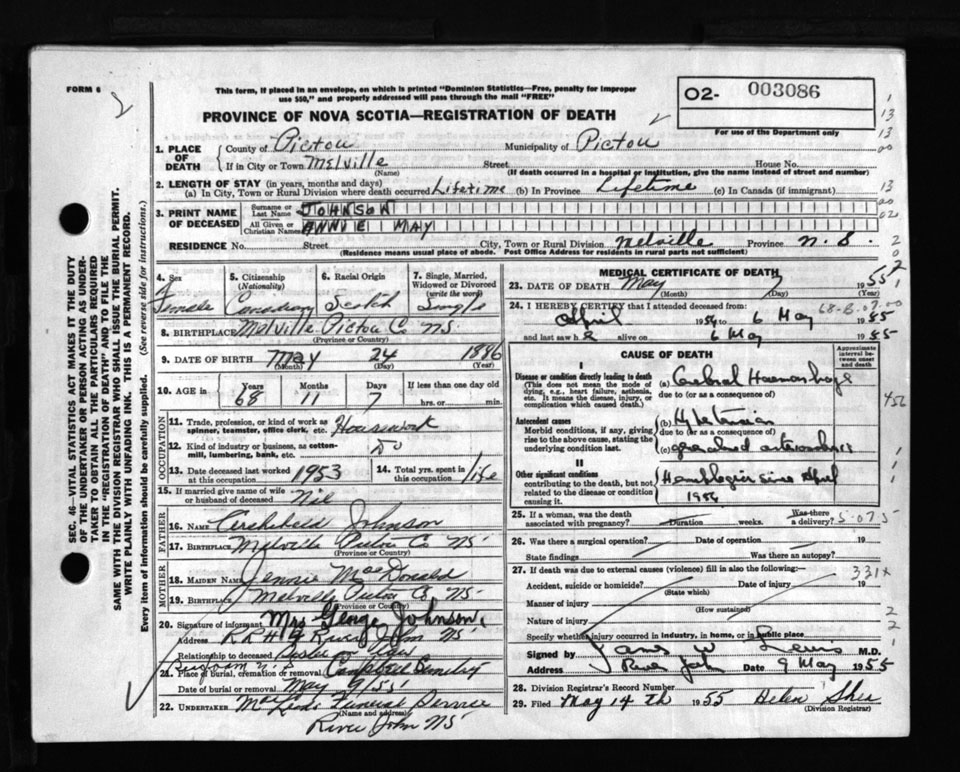 FORM 6
2
This form, if placed in an envelope, on which is printed "Dominion Statistics—Free, penalty for improper
use $50," and properly addressed will pass through the mail "FREE"
PROVINCE OF NOVA SCOTIA—REGISTRATION OF DEATH
O2- 003086
For use of the Department only
1. PLACE OF DEATH
County of Pictou Municipality of Pictou
If in City or Town Melville Street House No.
(Name) (If death occurred in a hospital or institution, give the name instead of street and number)
2. LENGTH OF STAY (in years, months and days)
(a) In City, Town or Rural Division where death occurred Lifetime (b) In Province Lifetime (c) In Canada (if immigrant)
3. PRINT NAME OF DECEASED
Surname or Last Name JOHNSON
All Given or Christian Names ANNIE MAY
RESIDENCE No. Street City, Town or Rural Division Melville Province N.S.
(Residence means usual place of abode. Post Office Address for residents in rural parts not sufficient)
4. Sex Female
5. Citizenship (Nationality) Canadian
6. Racial Origin Scotch
7. Single, Married, Widowed or Divorced (write the word) Single
8. BIRTHPLACE Melville Pictou Co NS.
(Province or Country)
9. DATE OF BIRTH May 24 1886
(Month) (Day) (Year)
10. AGE in Years 68 Months 11 Days 7 If less than one day old
hrs. or min.
OCCUPATION
11. Trade, profession, or kind of work as spinner, teamster, office clerk, etc. Housework
12. Kind of industry or business, as cotton-mill, lumbering, bank, etc. Do
13. Date deceased last worked at this occupation 1953
14. Total yrs. spent in this occupation life
15. If married give name of wife or husband of deceased Nil
FATHER
16. NAME Archibald Johnson
17. BIRTHPLACE Melville Pictou Co NS.
(Province or Country)
MOTHER
18. MAIDEN NAME Jennie MacDonald
19. BIRTHPLACE Melville Pictou Co NS.
(Province or Country)
20. Signature of informant Mrs George Johnson
Address RR# River John NS.
Relationship to deceased Sister in law
21. Place of burial, cremation or removal Cemetery
Date of burial or removal May 9/55
22. UNDERTAKER MacLeods Funeral Service
(Name and address)
River John NS
MEDICAL CERTIFICATE OF DEATH
23. DATE OF DEATH May 7 1955
(Month) (Day) (Year)
24. I HEREBY CERTIFY that I attended deceased from:
April 1954 to 6 May 1955
and last saw h alive on 6 May 1955
CAUSE OF DEATH
Approximate interval between onset and death
I
Disease or condition directly leading to death
(This does not mean the mode of dying, e.g., heart failure, asthenia, etc. It means the disease, injury, or complication which caused death.)
(a) Cerebral Haemorrhage
due to (or as a consequence of)
Antecedent causes
Morbid conditions, if any, giving rise to the above cause, stating the underlying condition last.
(b) Hypertension
due to (or as a consequence of)
(c) generalized arteriosclerosis
II
Other significant conditions
contributing to the death, but not related to the disease or condition causing it.
Hemiplegia since April
1954
25. If a woman, was the death associated with pregnancy? Duration weeks. Was there a delivery?
26. Was there a surgical operation? Date of operation 19
State findings Was there an autopsy?
27. If death was due to external causes (violence) fill in also the following:—
331x
Accident, suicide or homicide? Date of injury 19
(State which)
Manner of injury
(How sustained)
Nature of injury
Specify whether injury occurred in industry, in home, or in public place
Signed by M.D.
Address River John Date 9 May 1955
28. Division Registrar's Record Number
29. Filed May 14 th 1955 Helen
(Division Registrar)
SEC. 46—VITAL STATISTICS ACT MAKES IT THE DUTY
OF THE UNDERTAKER OR PERSON ACTING AS UNDER-
TAKER TO OBTAIN ALL THE PARTICULARS REQUIRED
IN THE "REGISTRATION OF DEATH" AND TO FILE THE
SAME WITH THE DIVISION REGISTRAR WHO SHALL ISSUE THE BURIAL PERMIT.
WRITE PLAINLY WITH UNFADING INK. THIS IS A PERMANENT RECORD.
Every item of information should be carefully supplied. (See reverse side for instructions.)